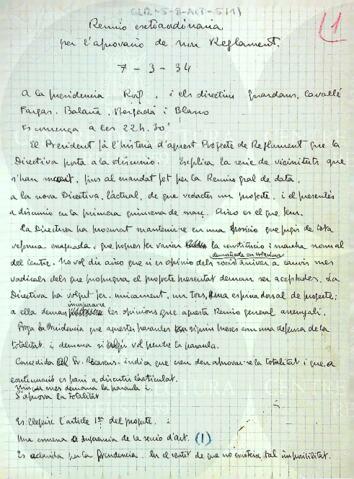 Reunio extraordinaria
per l'aprovacio de nou Reglament.
7 - 3 - 34
A la presidencia Roig. i els directius Guardans, Cavallé
Fargas. Balañá, Bergadá i Blanco
Es comença a les 22h. 30'
El President fà l'historia d'aquest Projecte de Reglament que la
Directiva porta a la discussio. Explica la serie de vicisituts que
s'han fins al mandat fet per la Reunio gral de data.
a la nova Directiva, l'actual, de que redactes un projecte, i el presentés
a discussio en la primera quinzena de març. Aixo es el que fem.
La Directiva ha procurat mantenir-se en una posicio que pugui de
reforma que la constitucio i marcha normal
del Centre. No vol dir aixo que si es opinio dels socis anar a canvis mes
radicals dels que propugna el projecte presentat deixin de ser aceptades. La
Directiva ha volgut fer, unicament, un tros, una espina dorsal de projecte;
a ella les opinions que aquesta Reunio general
Prega la Presidencia que aquestes paraules siguin preses com una defensa de la
totalitat i demana si algú vol pendre la paraula.
Concedida al Sr. indica que creu deu aprovar-se la totalitat i que a
continuació es passi a discutir l'articulat.
Ningú mes demana la paraula i
S'aprova la totalitat
Es llegeix l'article 1er del projecte. i
Una esmena a de la seccio d'art. (1)
Es per la Presidencia. En el sentit de que no existeix tal imposibilitat.
(1